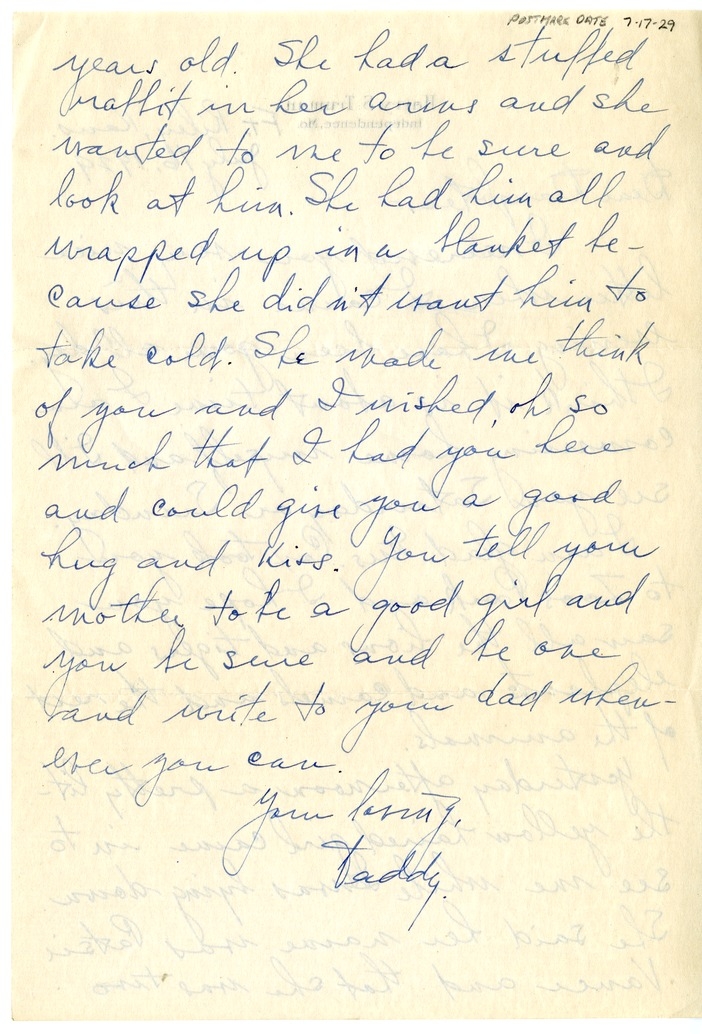 POSTMARK DATE 7-17-29
years old. She had a stuffed
rabbit in her arms and she
wanted to me to be sure and
look at him. She had him all
wrapped up in a blanket be-
cause she didn't want him to
take cold. She made me think
of you and I wished, oh so
much that I had you here
and could give you a good
hug and kiss. You tell your
mother to be a good girl and
you be sure and be one
and write to your dad when-
ever you can.
Your loving,
Daddy.